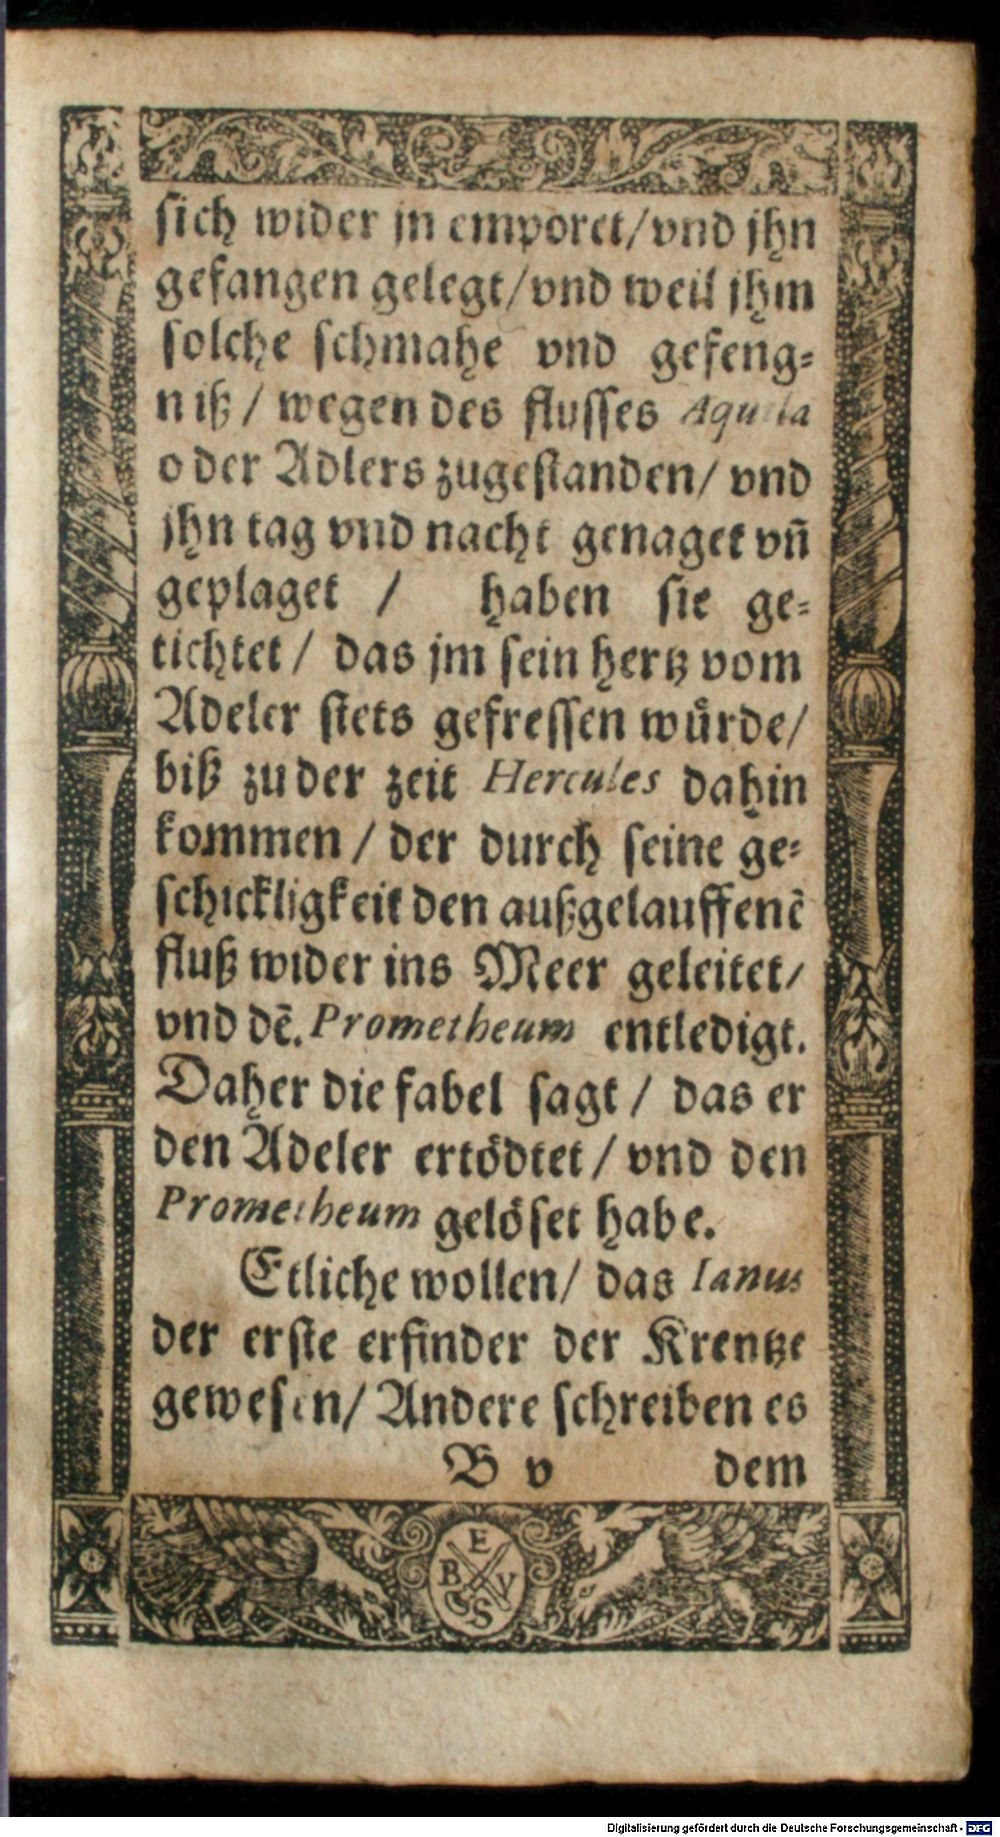 sich wider jn emporet/vnd jhn
gefangen gelegt/vnd weil jhm
solche schmahe vnd gefeng⸗
niß / wegen des flusses Aquila
oder Adlers zugestanden/ vnd
jhn tag vnd nacht genaget vñ
geplaget / haben sie ge⸗
tichtet / das jm sein hertz vom
Adeler stets gefressen wuͤrde/
biß zu der zeit Hercules dahin
kommen / der durch seine ge⸗
schickligkeit den außgelauffenẽ
fluß wider ins Meer geleitet/
vnd dẽ. Prometheum entledigt.
Daher die fabel sagt / das er
den Adeler ertoͤdtet / vnd den
Prometheum geloͤset habe.
Etliche wollen/ das Ianus
der erste erfinder der Krentze
gewesen/ Andere schreiben es
B v dem
E
B V
S
Digitalisierung gefördert durch die Deutsche Forschungsgemeinschaft - DFG